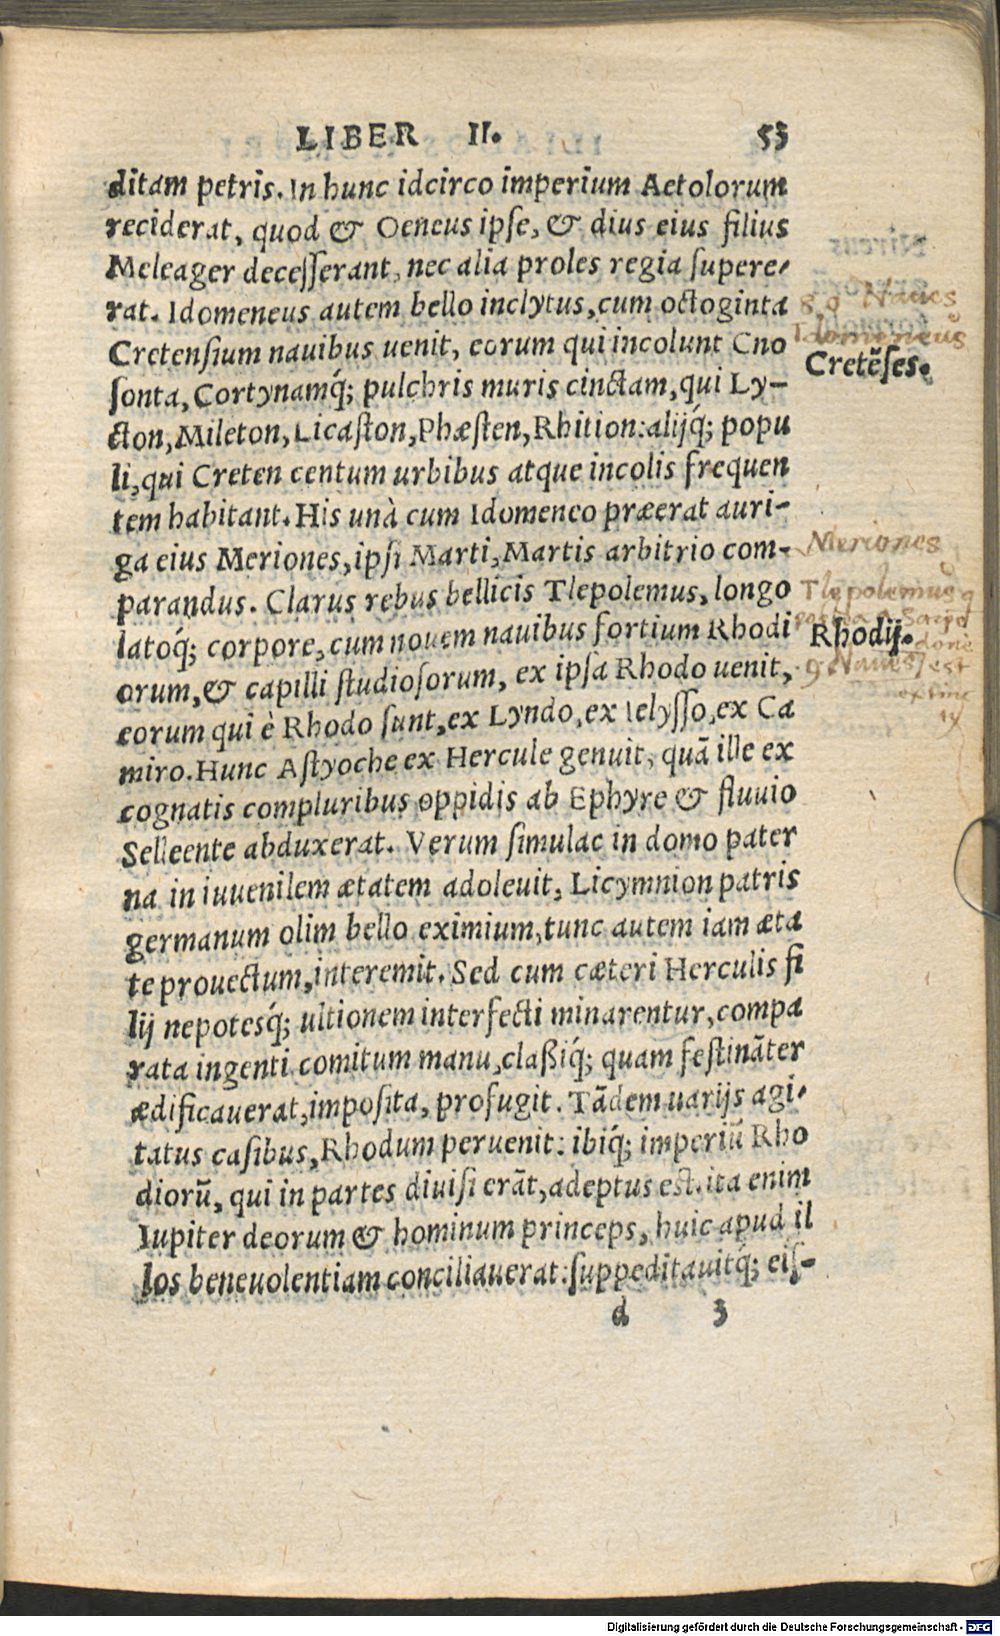 LIBER II. 53
ditam petris. In hunc idcirco imperium Aetolorum
reciderat, quod & Oeneus ipse, & dius eius filius
Meleager decesserant, nec alia proles regia supere-
rat. Idomeneus autem bello inclytus, cum octoginta
80 Naues
Idomeneus
Cretensium nauibus uenit, eorum qui incolunt Cno
Cretēses.
sonta, Cortynamq́; pulchris muris cinctam, qui Ly-
cton, Mileton, Licaston, Phæsten, Rhition: alijq́; popu
li, qui Creten centum urbibus atque incolis frequen
tem habitant. His unà cum Idomeneo præerat auri-
ga eius Meriones, ipsi Marti, Martis arbitrio com-
Meriones
parandus. Clarus rebus bellicis Tlepolemus, longo
Tlepolemus q
latoq́; corpore, cum nouem nauibus fortium Rhodi
Rhodij.
orum, & capilli studiosorum, ex ipsa Rhodo uenit,
9 Naues est
eorum qui è Rhodo sunt, ex Lyndo, ex Ielysso, ex Ca
miro. Hunc Astyoche ex Hercule genuit, quā ille ex
cognatis compluribus oppidis ab Ephyre & fluuio
Selleente abduxerat. Verum simulac in domo pater
na in iuuenilem ætatem adoleuit, Licymnion patris
germanum olim bello eximium, tunc autem iam æta
te prouectum, interemit. Sed cum cæteri Herculis fi
lij nepotesq́; ultionem interfecti minarentur, compa
rata ingenti comitum manu, claßiq́; quam festināter
ædificauerat, imposita, profugit. Tādem uarijs agi-
tatus casibus, Rhodum peruenit: ibiq́; imperiū Rho
diorū, qui in partes diuisi erāt, adeptus est. ita enim
Iupiter deorum & hominum princeps, huic apud il
los beneuolentiam conciliauerat: suppeditauitq́; eis-
d 3
Digitalisierung gefördert durch die Deutsche Forschungsgemeinschaft - DFG